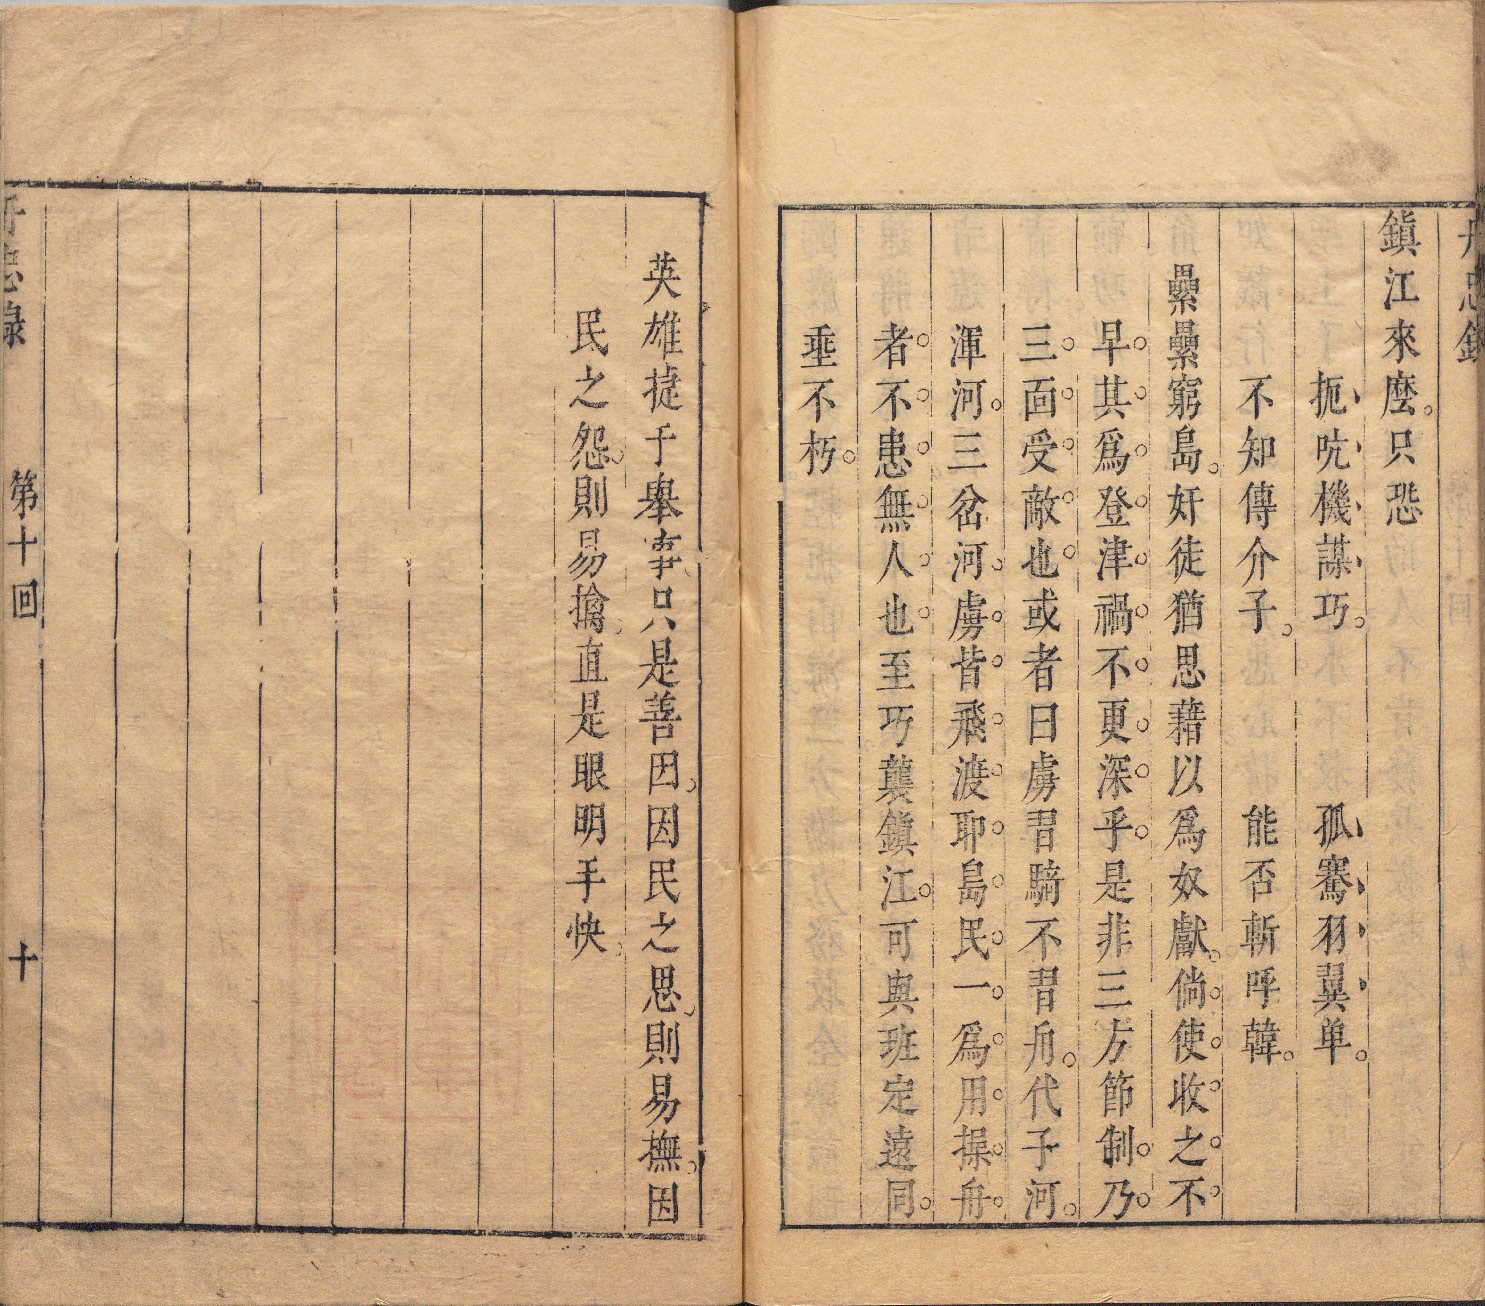 鎮江來麽。只恐
扼吭機謀巧。　孤騫羽翼单。
不知傳介子。　能否斬呼韓。
纍纍窮島。奸徒猶思藉以爲奴獻。倘使收之不
早。其爲登津禍不更深乎。是非三方節制。乃
三面受敵也。或者曰虜習騎不習舟。代子河。
渾河。三岔河。虜皆飛渡耶。島民一爲用。操舟
者不患無人也。至巧襲鎮江。可與班定遠同。
垂不朽。
英雄捷于舉事、只是善因。因民之思、則易撫。因
民之怨、則易擒、直是眼明手快、
第十回
十